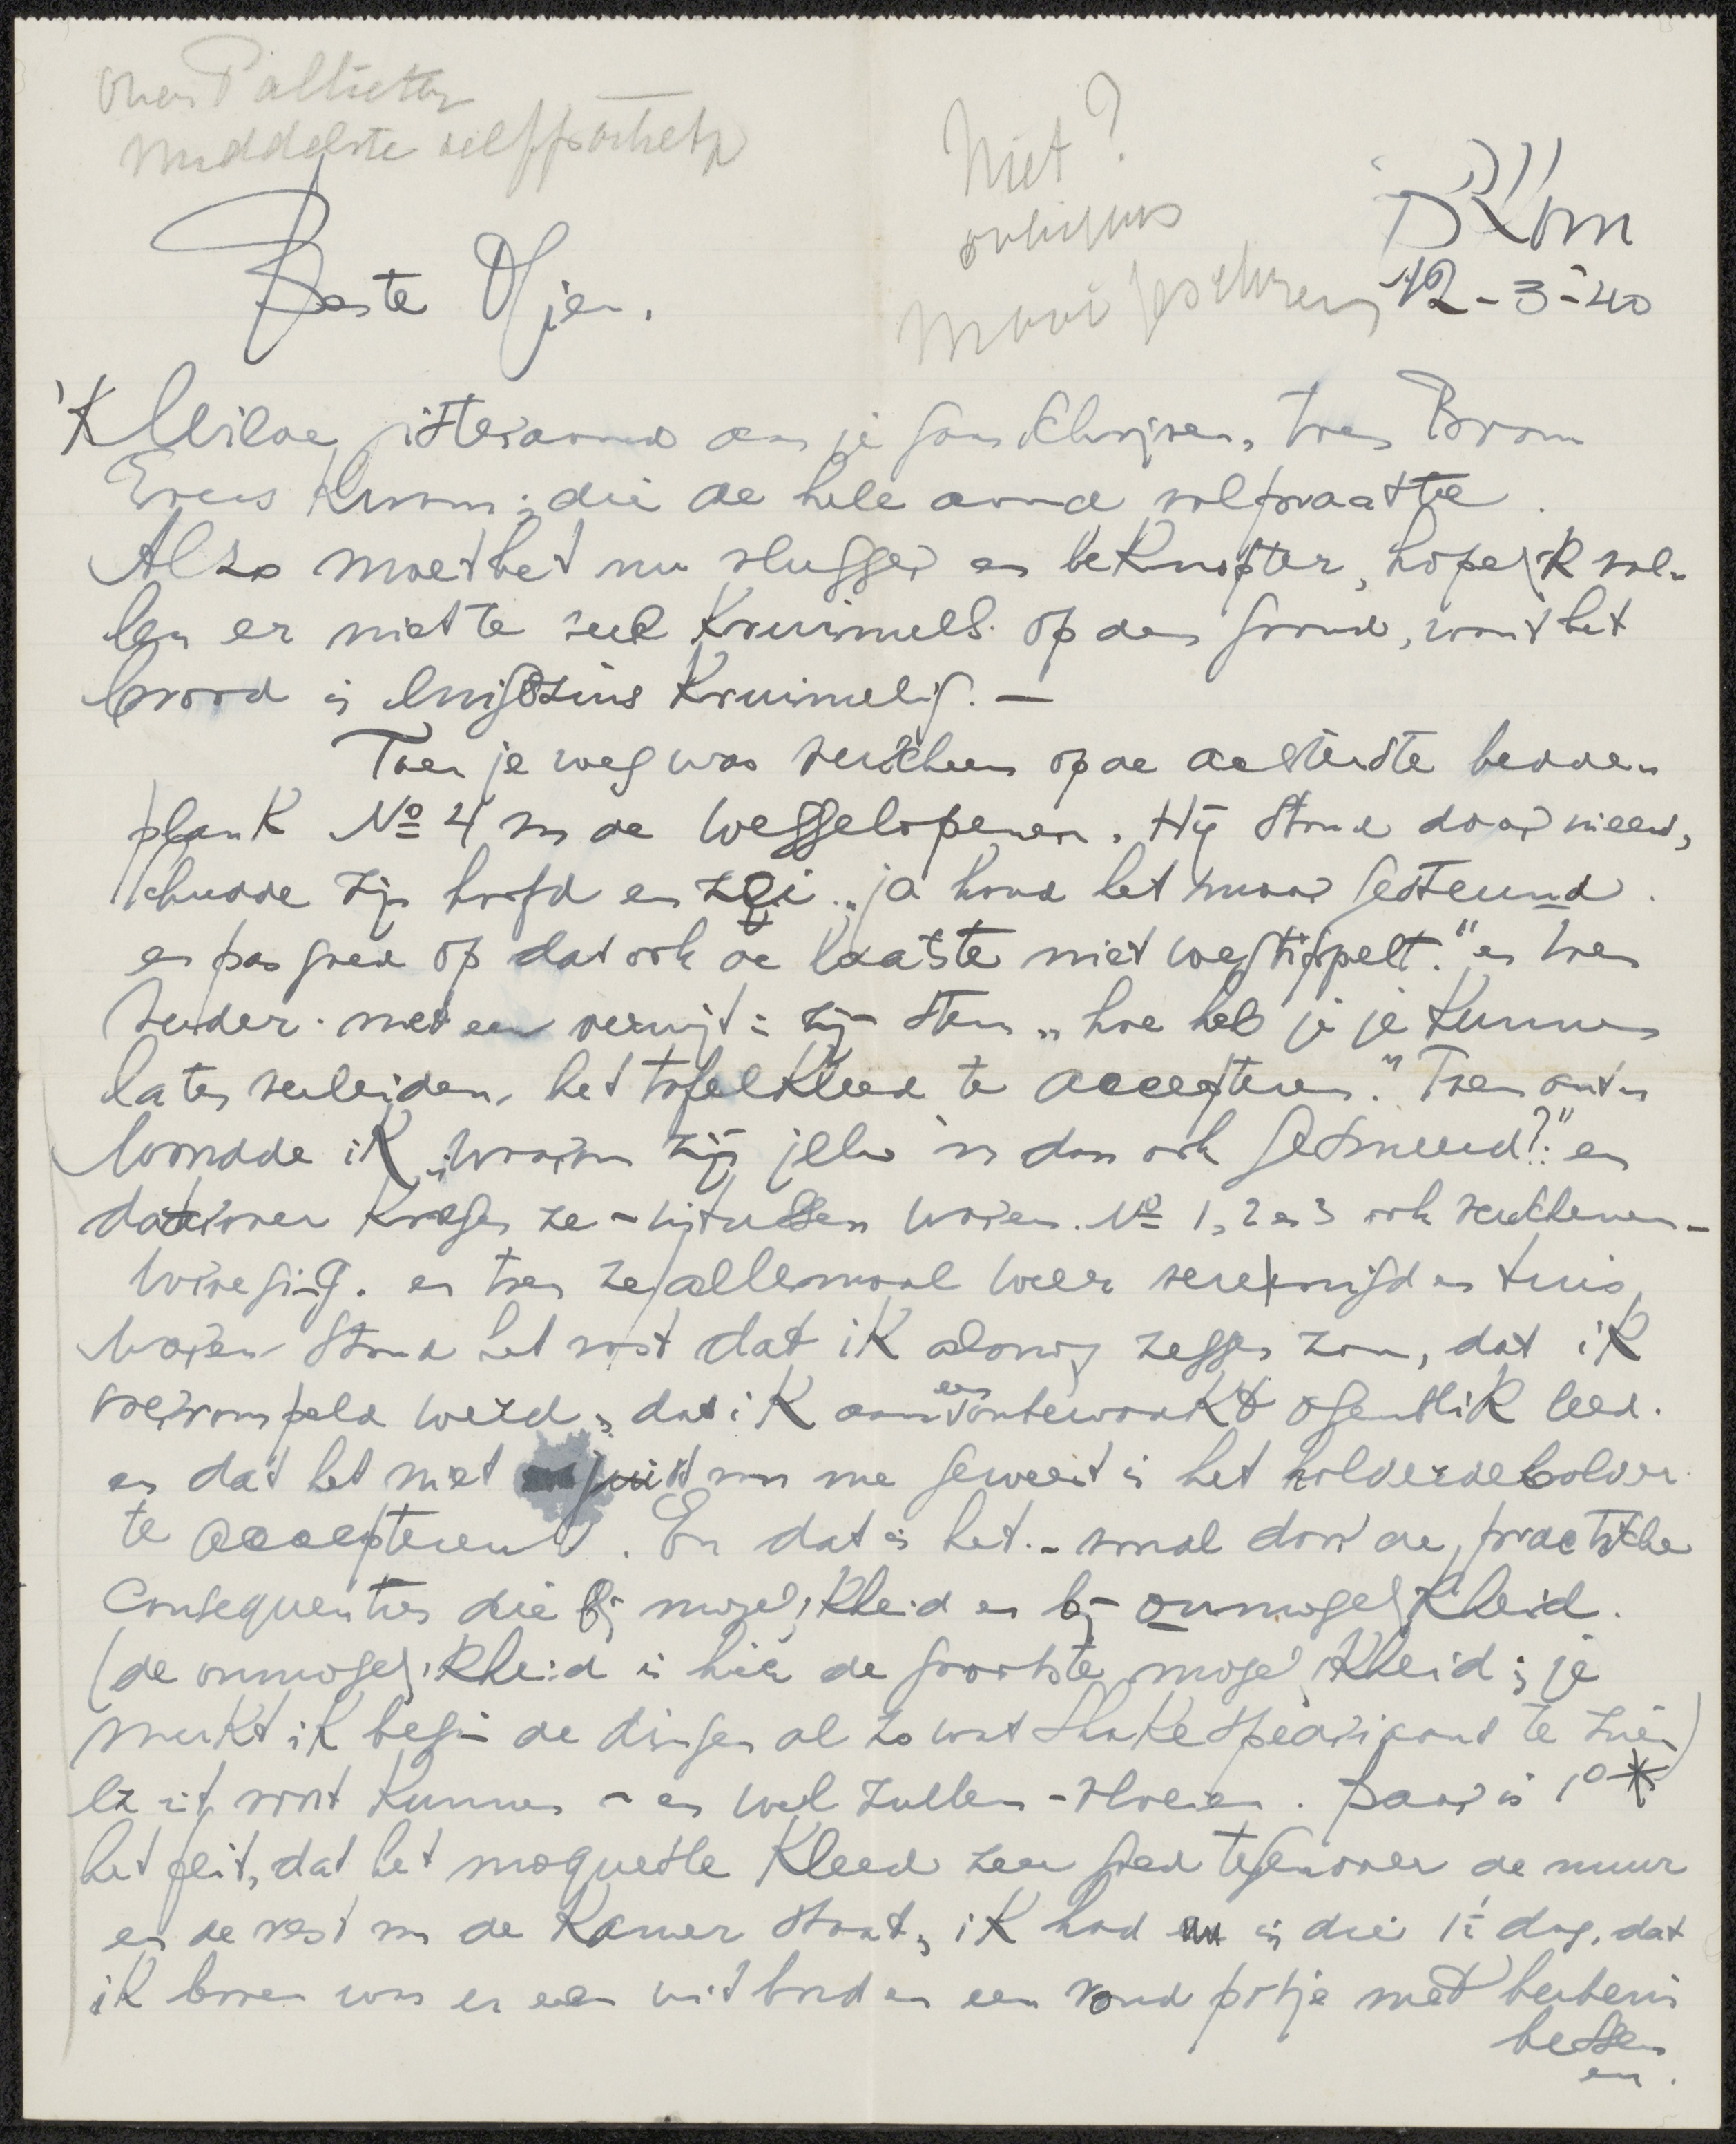 over Pallieter
middelste
Niet?
overigens
mooi geschreven
12-3-40
Beste Ojen.
'K Wilde gisteravond aan je gaan schrijven, toen Brom
Evens Kwam; die de hele avond volpraatte.
Alzo moet het nu vlugger en beknopter, hopelijk val-
len er niet te veel Kruimels op den grond, want het
brood is enigszins Kruimelig. —
Toen je weg was verscheen op de onderste bedden
plank No 4 van de weggelopenen. Hij stond daar ineens,
schudde zijn hoofd en zei „ja houd het maar gesteund.
en pas goed op dat ook de laatste niet wegstippelt." en toen
verder met een verwijt in zijn stem „hoe heb je je Kunnen
laten verleiden, het tafelkleed te accepteren." Toen ant-
woordde iK „waarom zijn jullie er dan ook gesmeerd?:" en
daarover Kregen ze – intussen waren No 1, 2 en 3 ook verschenen –
wroeging. en toen ze allemaal weer verenigd en thuis
waren stond het vast dat iK alsnog zeggen zou, dat iK
overrompeld werd, dat iK aan een onbewaakt ogenblik leed.
en dat het niet juist van me geweest is het holderdebolder
te accepteren. En dat is het. – vooral door de practische
Consequenties die bij mogelijkheid en bij onmogelijkheid.
(de onmogelijkheid is hier de grootste mogelijkheid; je
merkt iK begin de dingen al zo wat Shakespeariaans te zien)
er uit voort Kunnen – en wel zullen – vloeien. Daar is 1o *
het feit, dat het moquette Kleed zeer goed tegenover de muur
en de rest van de Kamer staat, iK had in die 1½ dag, dat
iK boven was er een wit bord en een rond potje met berberis
bessen
en.